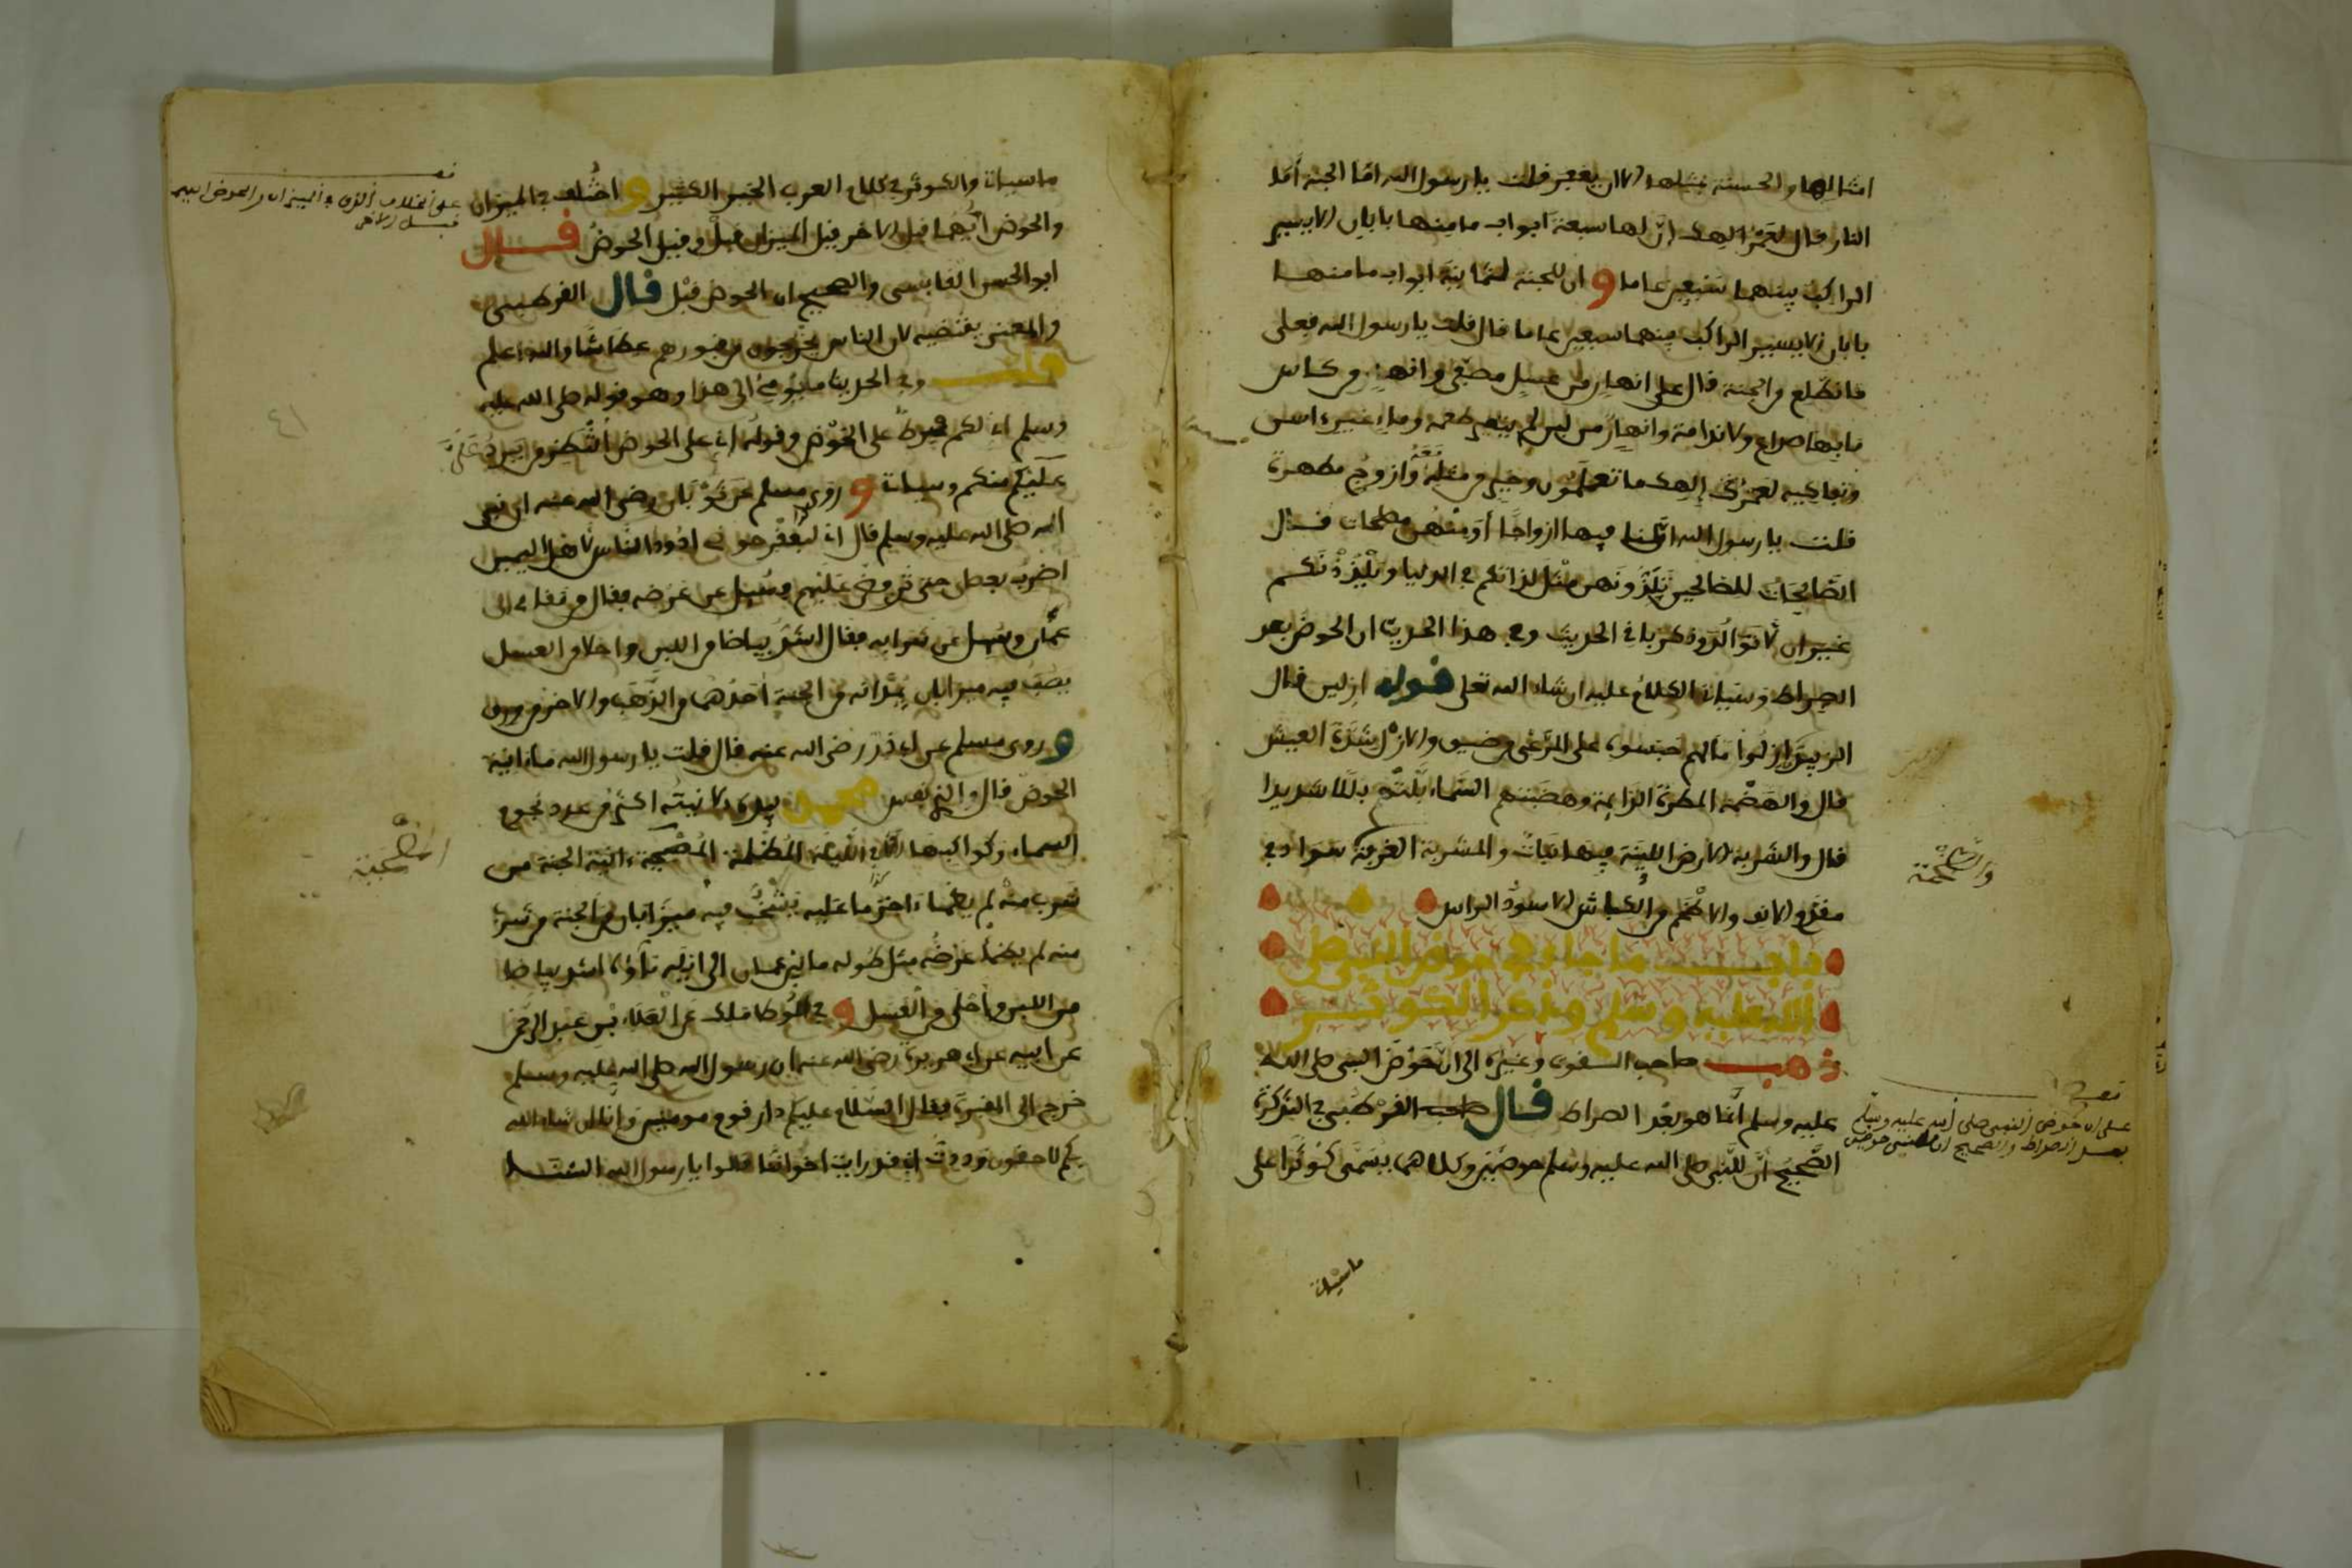 امثالها والحسنة بمثلها الا ان يغفر قلت يا رسول الله اما الجنة اما
النار قال لعمر الهك ان لها سبعة ابواب ما منها بابان الا يسير
الراكب بينهما سبعين عاما و ان للجنة لثمانية ابواب ما منها
بابان الا يسير الراكب بينهما سبعين عاما قال قلت يا رسول الله فعلى
ما نطلع من الجنة قال على انهار من عسل مصفى وانهار من كاس
ما بها صداع ولا ندامة وانهار من لبن لم يتغير طعمه وماء غير ءاسن
وبفاكهة لعمر إلهك ما تعلمون وخير من مثله معه وأزوج مطهرة
قلت يا رسول الله ا و لنا فيها ازواجا أو منهن مصلحات قال
الصالحات للصالحين تلذونهن مثل لذاتكم في الدنيا ويلذذنكم
غير ان لا توالد وذكر باقي الحديث وفي هذا الحديث ان الحوض بعد
الصراط وسياتي الكلام عليه ان شاء الله تعلى قوله ازلين قال
ازلوا مالهم حبسوه على المرعى من ضيق والازل شدة العيش
قال والهضبة المطرة الدايمة وهضبتهم السماء بلتهم بللا شديدا
قال والشربة الارض اللينة فيها نبات والمشربة الغرفة سواد في
مقدم الانف والاطخم من الكباش الاسود الراس
باب ما جاء في حوض النبي صلى
الله عليه وسلم وذكر الكوثر
ذهب صاحب القوت وغيره الى ان حوض النبي صلى الله
عليه وسلم انما هو بعد الصراط قال صاحب القرطبي في التذكرة
الصحيح أن للنبي صلى الله عليه وسلم حوضين وكلاهما يسمى كوثرا على
ما سياتي
قف
على ان حوض النبي صلى الله عليه وسلم
بعد الصراط والصحيح ان للنبي حوضين
ما سياتي والكوثر في كلام العرب الخير الكثير و اختلف في الميزان
والحوض ايهما قبل الاخر فقيل الميزان قبل وقيل الحوض قال
ابو الحسن القابسي والصحيح ان الحوض قبل قال القرطبي
والمعنى يقتضيه لان الناس يخرجون من قبورهم عطاشا والله اعلم
قلت وفي الحديث ما يؤمئ الى هذا وهو قوله صلى الله عليه
وسلم انى لكم فرط على الحوض وقوله انى على الحوض أنتظر من يرد علي
منكم وسياتي و روى مسلم عن ثوبان رضي الله عنه ان نبي
الله صلى الله عليه وسلم قال انى لبعقر حوضي اذود الناس لأهل اليمن
اضرب بعصاي حتى يرفض عليهم فسئل عن عرضه فقال من مقامي الى
عمان وسئل عن شرابه فقال اشد بياضا من اللبن واحلا من العسل
يصب فيه ميزابان يمدانه من الجنة أحدهما من الذهب والاخر من ورق
و روى مسلم عن ابي ذر رضي الله عنه قال قلت يا رسول الله ما ءانية
الحوض قال والذي نفس محمد بيده لانيته اكثر من عدد نجوم
السماء وكواكبها الا في الليلة المظلمة المصحية ءانية الجنة من
شرب منها لم يظماء اخر ما عليه يشخب فيه ميزابان من الجنة من شرب
منه لم يظما عرضه مثل طوله ما بين عمان الى ايلة ماؤه اشد بياضا
من اللبن وأحلى من العسل و في الموطا ملك عن العلاء بن عبد الرحمن
عن ابيه عن ابي هريرة رضي الله عنه ان رسول الله صلى الله عليه وسلم
خرج الى المقبرة فقال السلام عليكم دار قوم مومنين وإنا ان شاء الله
بكم لاحقون وددت اني قد رايت اخواننا قالوا يا رسول الله السنا
قف
على الخلاف الذي في الميزان والحوض ايهما
قبل الاخر
٤١